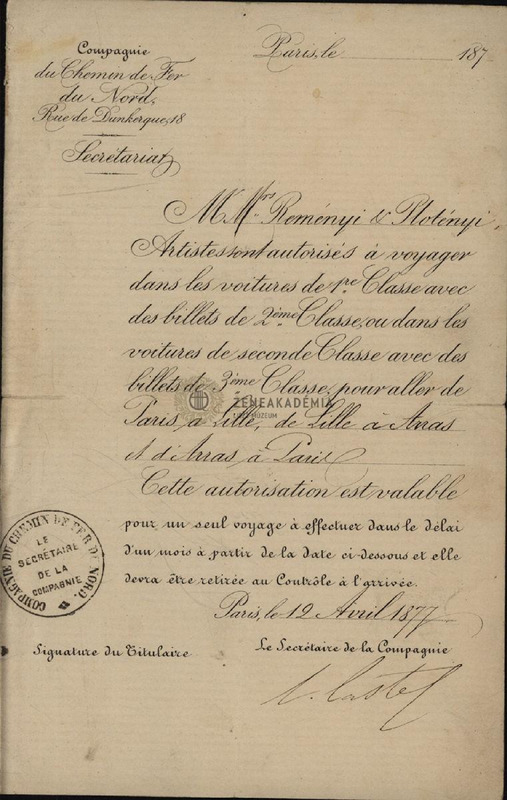 Compagnie
du Chemin de Fer
du Nord.
Rue de Dunkerque, 18
Secrétariat
Paris, le 187
MM.rs Reményi & Plotényi,
Artistes sont autorisés à voyager
dans les voitures de 1re Classe avec
des billets de 2ème Classe, ou dans les
voitures de seconde Classe avec des
billets de 3ème Classe, pour aller de
Paris, à Lille, de Lille à Arras
et d'Arras à Paris
Cette autorisation est valable
pour un seul voyage à effectuer dans le délai
d'un mois à partir de la date ci-dessous et elle
devra être retirée au Contrôle à l'arrivée.
Paris, le 12 Avril 1877
Signature du Titulaire
Le Secrétaire de la Compagnie
COMPAGNIE DU CHEMIN DE FER DU NORD.
LE
SECRÉTAIRE
DE LA
COMPAGNIE
ZENEAKADÉMIA
LISZT MÚZEUM